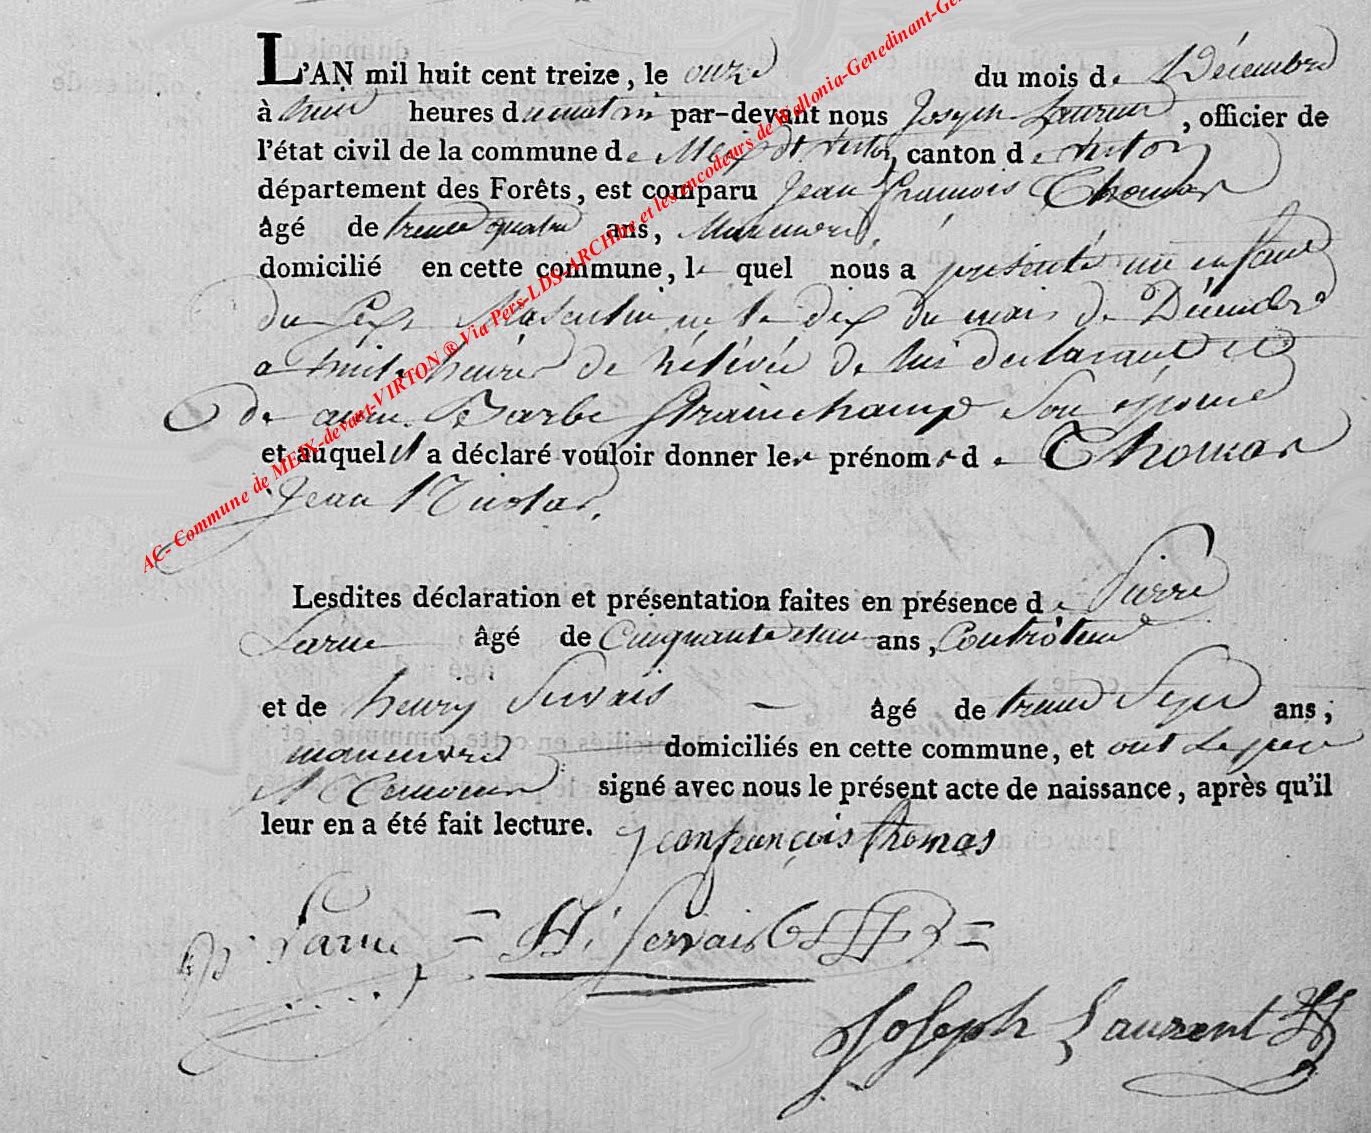 L'AN mil huit cent treize, le onze du mois de Décembre
à huit heures du matin par-devant nous Joseph Laurent, officier de
l'état civil de la commune de Meix dt virton, canton de virton
département des Forêts, est comparu Jean francois Thomas
âgé de trente quatre ans, Maneuvre,
domicilié en cette commune, le quel nous a présenté un enfant
du Sexe Masculin, né le dix du mois de Décembre
a huit heures de rélévée de lui déclarant et
de Barbe Grainchamp Son épouse
et auquel il a déclaré vouloir donner les prénoms de Thomas
Jean Nicolas.
Lesdites déclaration et présentation faites en présence de Pierre
Larue âgé de Cinquante et un ans, Controleur
et de henry Servais âgé de trente Sept ans,
maneuvre domiciliés en cette commune, et ont Le pere
et Temoins signé avec nous le présent acte de naissance, après qu'il
leur en a été fait lecture.
jeanfrançois thomas
P. Larue = H. Servais =
Joseph Laurent
AC- Commune de MEIX-devant-VIRTON ® Via Pers-LDS-ARCHive et les encodeurs de Wallonia-Genedinant-Ge